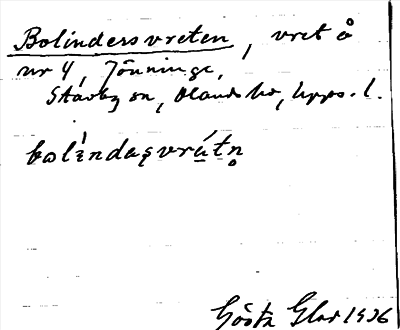 Bolindersvreten, vret å
nr 4, Jönninge,
Stavby sn, Olands hd, Upps. l.
bolíndaşvrátn̥
Gösta Glad 1936